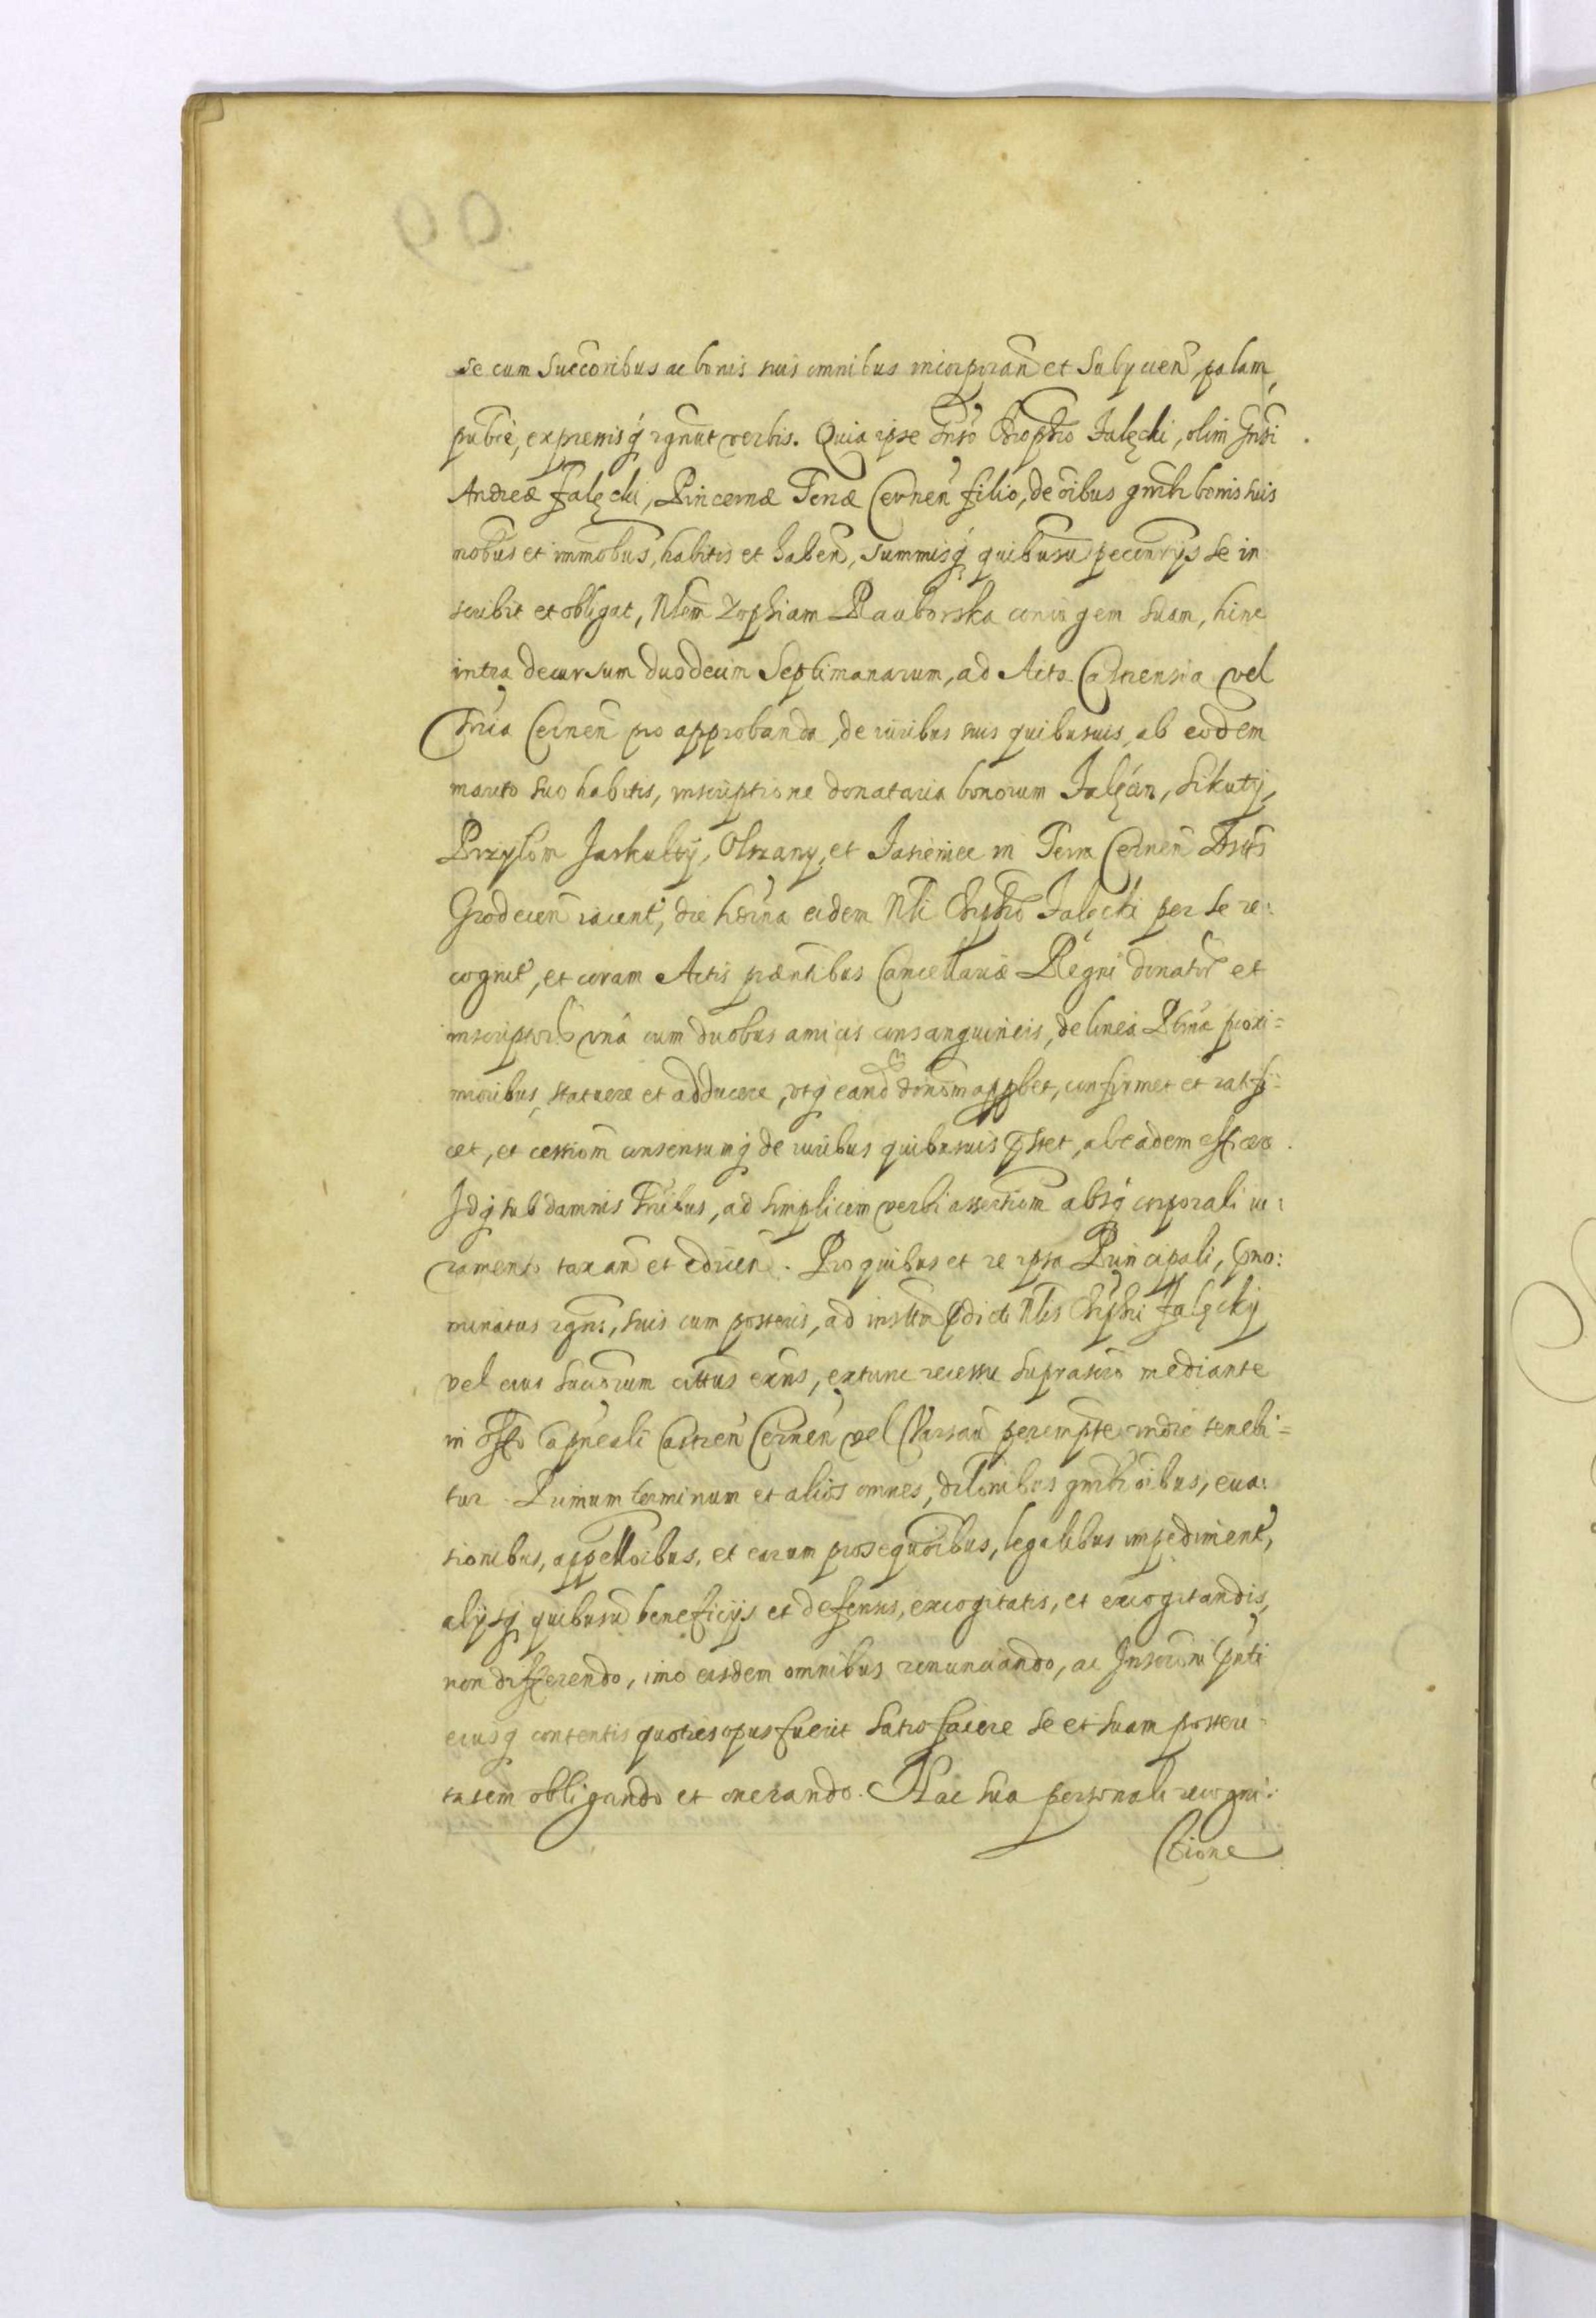 se cum Succoribus ac bonis suis omnibus incorporan et Subycien, palam,
publce, expressisq rgnut verbis. Quia ipse Gnso Chrophro Jalęcki, olim Gnsi
Andreæ Jalęcki, Pincernæ Terræ Cernen filio, de oibus gnrlr bonis suis
mobus et immobus, habitis et haben, summisq quibusu pecunrijs se in
scribit et obligat, Nlem Zophiam Rauborska coniugem suam, hinc
intra decursum duodecim Septimanarum, ad Acta Castrensia vel
Trria Cernen pro approbanda, de iuribus suis quibusuis, ab eodem
marito suo habitis, inscriptione donataria bonorum Jalęcin, Sikuty,
Przylom Jarkulty, Olszany, et Jasieniec in Terra Cernen Dstrs
Grodecen iacent, die hdrna eidem Nli Chrphro Jalęcki per se re:
cognit, et coram Actis præntibus Cancellariæ Regni donator et
inscriptor vna cum duobus amicis consanguineis, de linea Pbrna proxi=
mioribus, statuere et adducere, vtq eand donom appbet, confirmet et ratifi=
cet, et cessiom consensumq de iuribus quibusuis pstet, ab eadem efficere.
Idq sub damnis Trribus, ad simplicem verbi assertiom absq corporali iu:
ramento taxan et educen. Pro quibus et re ipsa Principali, pno:
minatus rgns, suis cum posteris, ad instm pdicti Nlis Chrphri Jalęckij
vel eius succorum cittus exns, extunc recessu suprascro mediante
in offo Capneali Castren Cernen vel Varsau perempte rndre tenebi=
tur. Primum terminum et alios omnes, dilonibus gnrlr oibus, eua:
sionibus, appelloibus, et earum prosequoibus, legalibus impediment,
alijsq quibusu beneficijs et defensis, excogitatis, et excogitandis,
non differendo, imo eisdem omnibus renunciando, ac Inscroni pnti
eiusq contentis quoties opus fuerit satisfacere se et suam posteri=
tatem obligando et onerando. Hac sua personali recogni:
tione